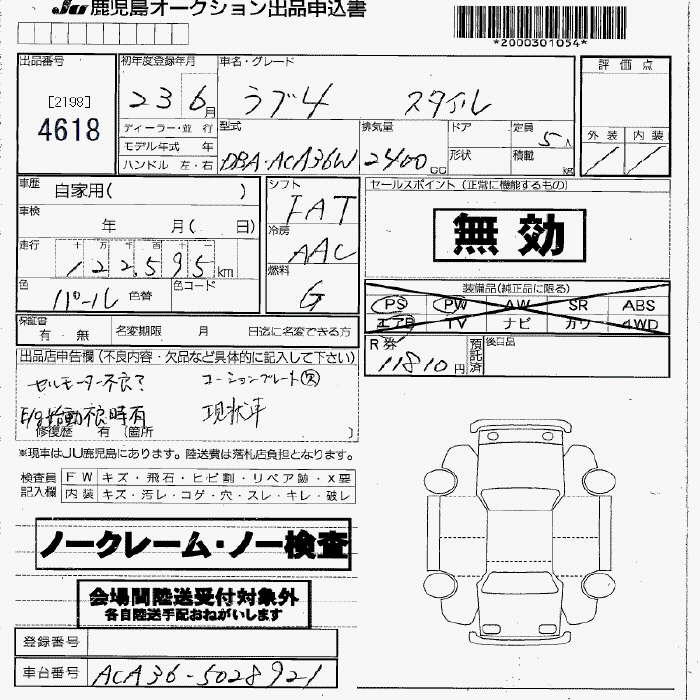 JU 鹿児島オークション出品申込書
*2000301054*
出品番号
[2198]
4618
初年度登録年月
23 6月
車名・グレード
ラブ4 スタイル
評価点
外装 内装
ディーラー・並行
モデル年式 年
ハンドル 左・右
型式
DBA-ACA36W
排気量
2400cc
ドア
形状
定員
5人
積載
kg
車歴
自家用( )
車検
年 月( 日)
走行
十万千百十一
122595km
色
パール 色替
色コード
シフト
FAT
冷房
AAC
燃料
G
セールスポイント(正常に機能するもの)
無効
装備品(純正品に限る)
PS PW AW SR ABS
エアB TV ナビ カワ 4WD
保証書
有・無
名変期限 月 日迄に名変できる方
R券
11810円
預託済
後日品
出品店申告欄(不良内容・欠品など具体的に記入して下さい)
セルモーター不良? コーションプレート欠
E/g始動不良時有 現状車
修復歴 有 (箇所 )
※現車はJU鹿児島にあります。陸送費は落札店負担となります。
検査員記入欄
FW キズ・飛石・ヒビ割・リペア跡・X要
内装 キズ・汚レ・コゲ・穴・スレ・キレ・破レ
ノークレーム・ノー検査
会場間陸送受付対象外
各自陸送手配おねがいします
登録番号
車台番号
ACA36-5028921